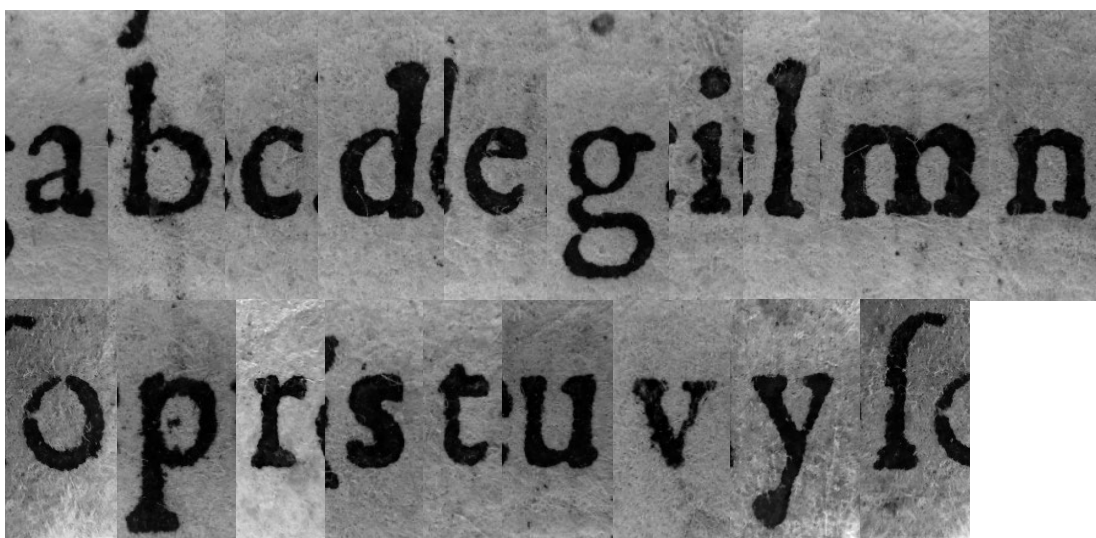 a b c d e g i l m n
o p r s t u v y ſ